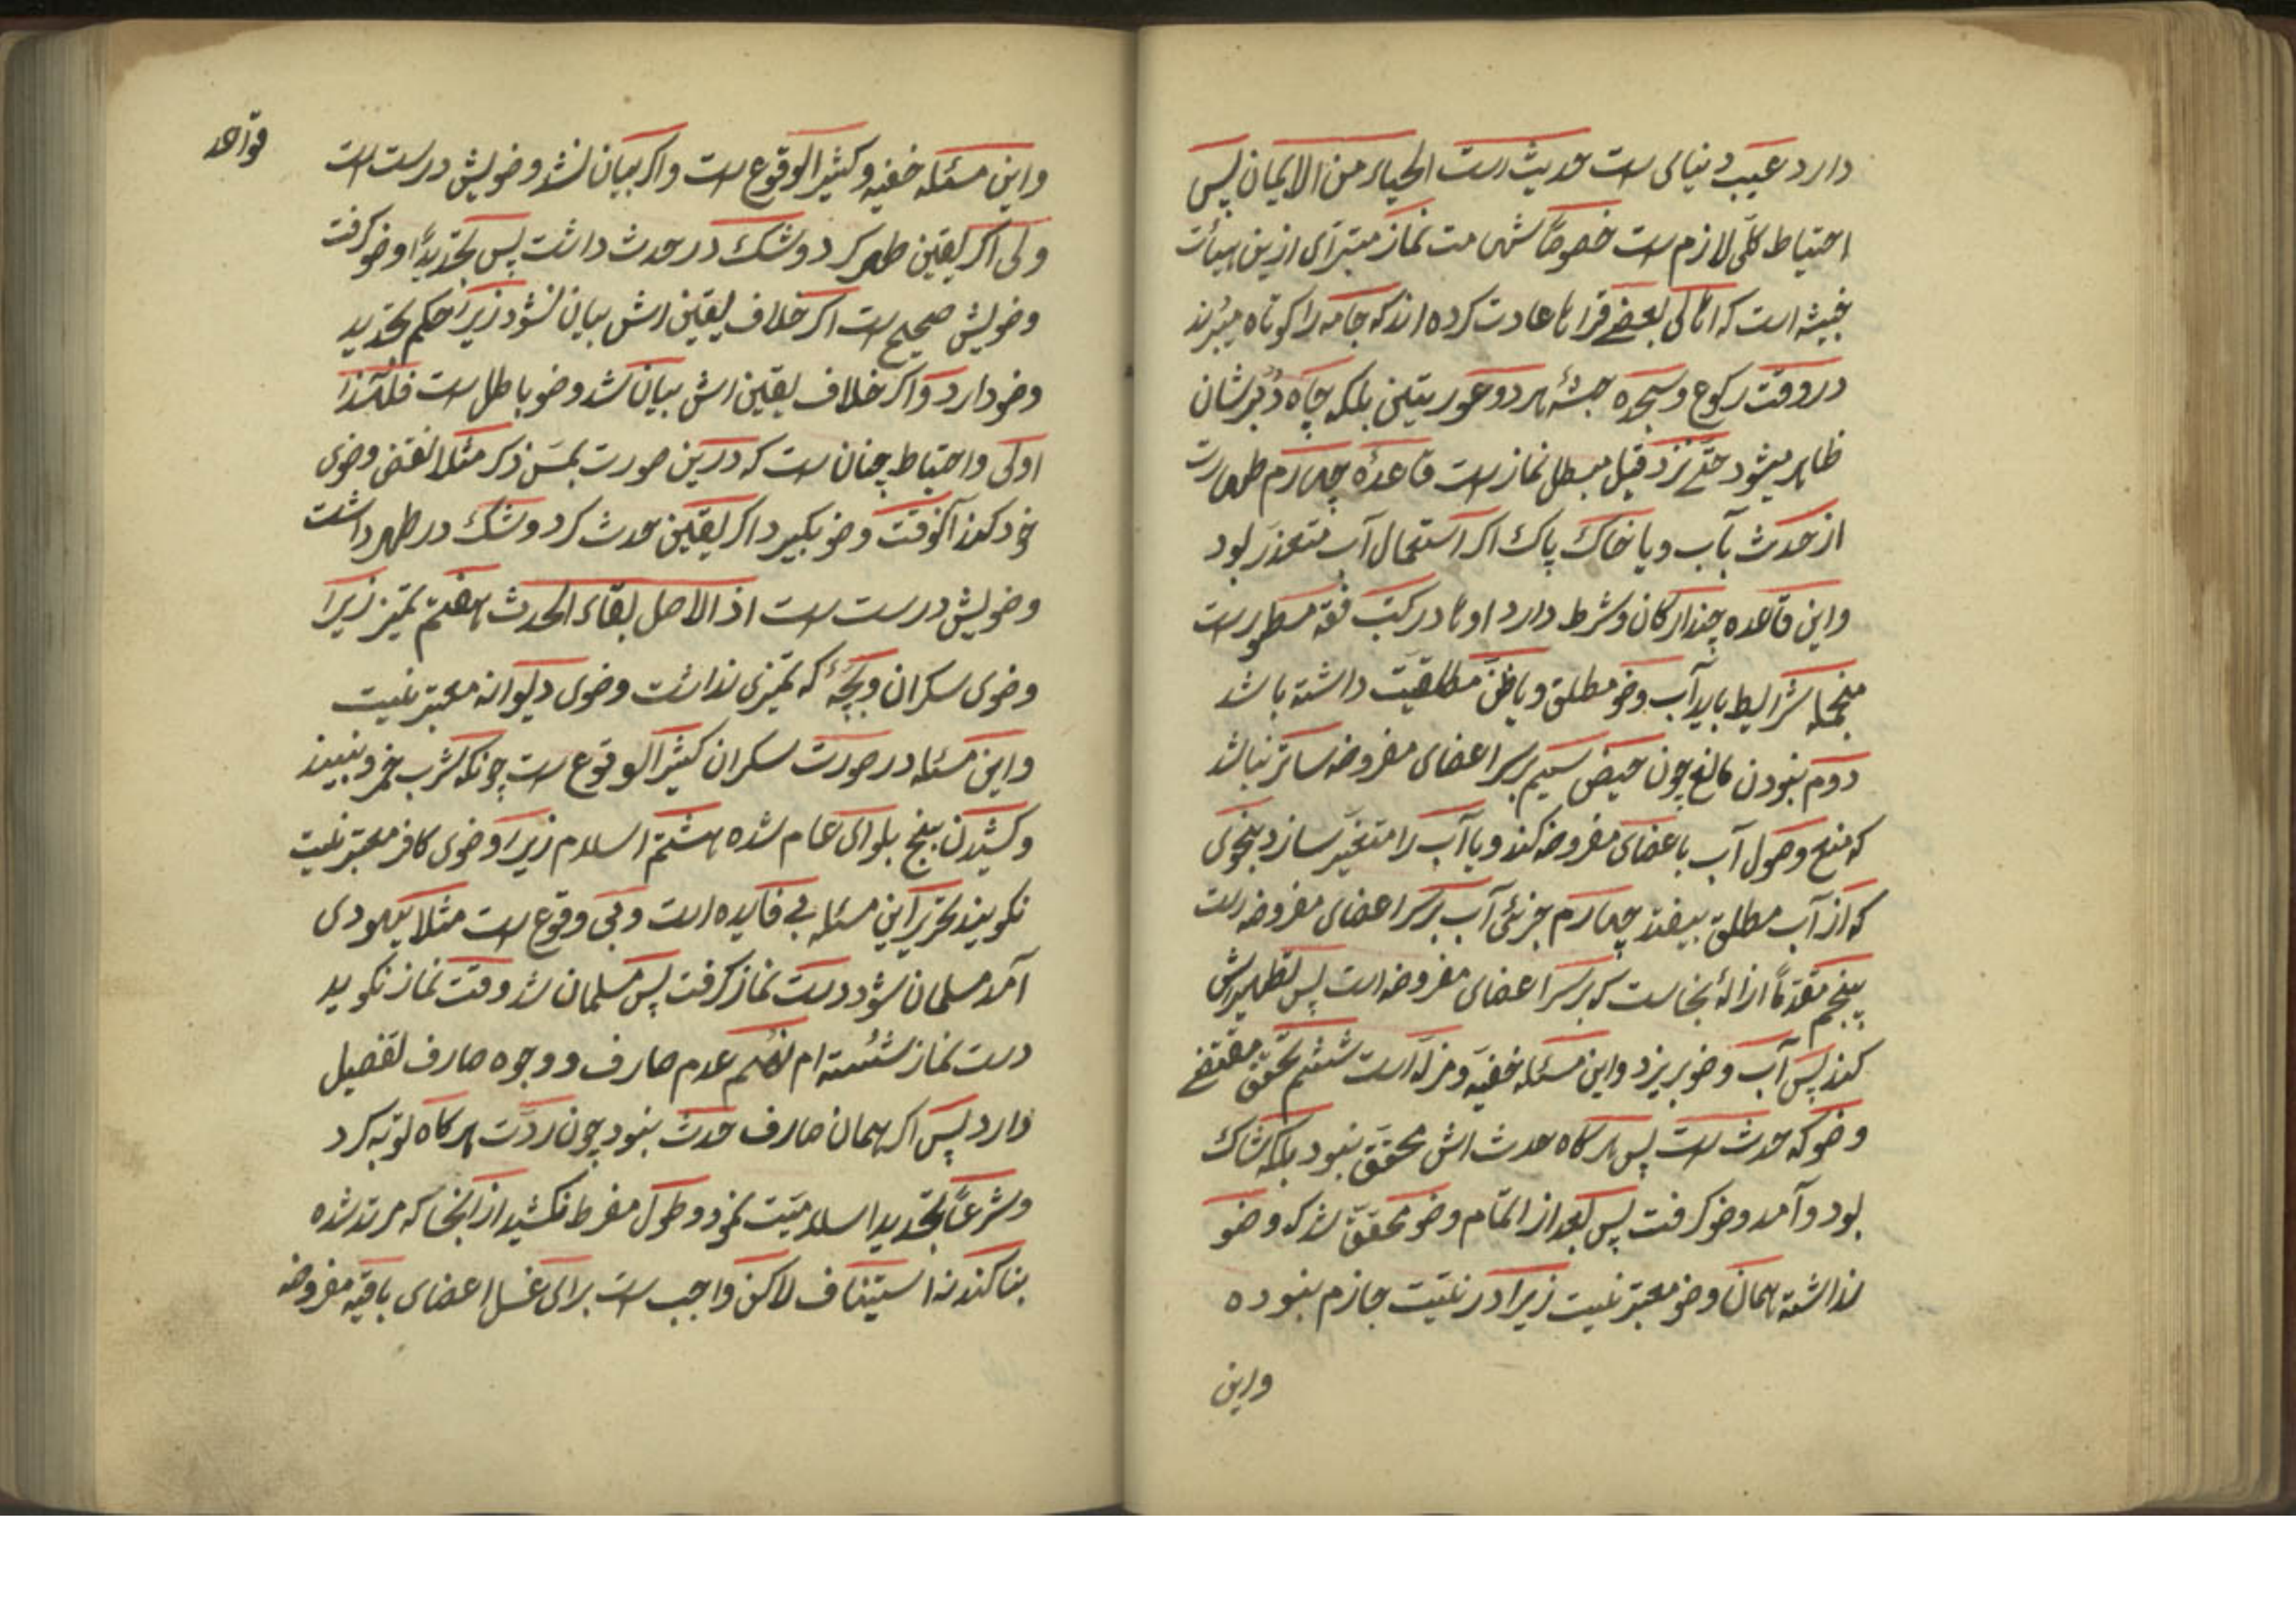 دارد عیب دنیای است حدیث است الحیاء من الایمان پس
احتیاط کلّی لازم است خصوصاً شهامت نماز مبترّای ازین هیأت
خبیثه است که اهالی بعضے قراها عادت کرده اند که جامه را کوتاه میبرند
در وقت رکوع وسجده جثهٔ هر دو عورتین بلکه چاه دُبرشان
ظاهر میشود حتّے نزد قیل مبطل نماز است قاعدهٔ چهارم طهارت
از حدث بآب ویا خاک پاک اکر استعمال آب متعذر بود
واین قاعده چند ارکان وشرط دارد اوها در کتب فقه مسطور است
منجمله شرایط باید آب وضو مطلق ویا ظنّ مطلقیّت داشته باشد
دوم نبودن مانع چون حیض سیم بر سر اعضای مفروضه ساتر نباشد
که منع وصول آب باعضای مفروضه کند ویا آب را متغیّر سازد بنحوی
که از آب مطلق بیفتد چهارم جرئ آب بر سر اعضای مفروضه است
پنجم مقدّماً ازالهٔ نجاست که بر سر اعضای مفروضه است پس تطهیرش
کند پس آب وضو بریزد واین مسئله خفیّه ومزلّه است ششم تحقّق مقتضے
وضو که حدث است پس هر کاه حدث اش محقّق نبود بلکه شاک
بود وآمد وضو کرفت پس بعد از اتمام وضو محقّق شد که وضو
نداشته همان وضو معتبر نیست زیرا در نیّت جازم نبوده
واین
واین مسئله خفیه وکثیر الوقوع است واکر بیان نشد وضویش درست است
ولی اکر یقین طهر کرد وشک در حدث داشت پس تجدیداً وضو کرفت
وضویش صحیح است اکر خلاف یقین اش بیان نشود زیرا حکم تجدید
وضو دارد واکر خلاف یقین اش بیان شد وضو باطل است فلهذا
اولی واحتیاط چنان است که درین صورت بمسّ ذکر مثلا نقض وضوی
خود کند آنوقت وضو بکیرد اکر یقین حدث کرد وشک در طهر داشت
وضویش درست است اذ الاصل بقاء الحدث هفتم تمیز زیرا
وضوی سکران وبچّهٔ که تمیزی نداشت وضوی دیوانه معتبر نیست
واین مسئله در صورت سکران کثیر الوقوع است چونکه شرب خمر ونبیند
وکشیدن بنج بلوای عام شده هشتم اسلام زیرا وضوی کافر معتبر نیست
نکویند تحریر این مسئله بے فایده است وبی وقوع است مثلا یهودی
آمد مسلمان شود دست نماز کرفت پس مسلمان شد وقت نماز نکوید
دست نماز شسته ام نهم عدم صارف ووجوه صارف تفصیل
دارد پس اکر همان صارف حدث نبود چون ردّت هر کاه توبه کرد
وشرعاً تجدید اسلامیّت نمود وطول مفرط نکشید از آنجا که مرتد شده
بنا کند نه استیناف لاکن واجب است برای غسل اعضای باقیه مفروضه